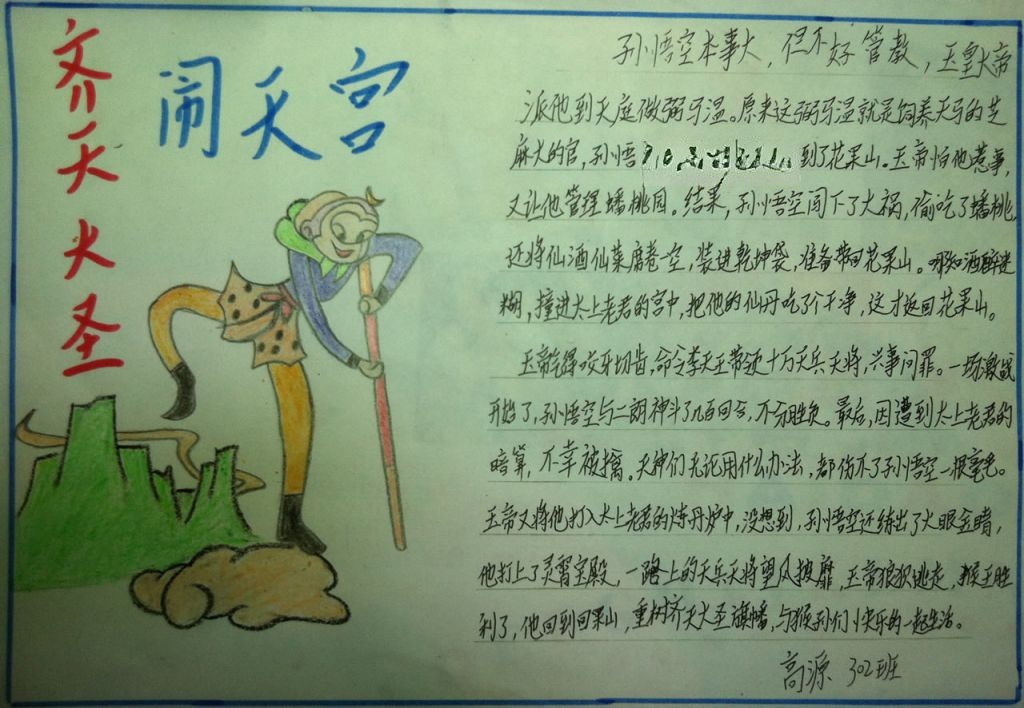 齐天大圣
闹天宫
孙悟空本事大，但不好管教，玉皇大帝
派他到天庭做弼马温。原来这弼马温就是饲养天马的芝
麻大的官，孙悟 到了花果山。玉帝怕他惹事，
又让他管理蟠桃园。结果，孙悟空闯下了大祸，偷吃了蟠桃，
还将仙酒仙菜席卷一空，装进乾坤袋，准备带回花果山。哪知酒醉迷
糊，撞进太上老君的宫中，把他的仙丹吃了个干净，这才返回花果山。
玉帝气得咬牙切齿，命令李天王带领十万天兵天将，兴事问罪。一场激战
开始了，孙悟空与二朗神斗了几百回合，不分胜负。最后，因遭到太上老君的
暗算，不幸被擒。天神们无论用什么办法，都伤不了孙悟空一根毫毛。
玉帝又将他打入太上老君的炼丹炉中，没想到，孙悟空还练出了火眼金睛，
他打上了灵霄宝殿，一路上的天兵天将望风披靡，玉帝狼狈逃走，猴王胜
利了，他回到回果山，重树齐天大圣旗幡，与猴孙们快乐的一起生活。
高源 302班